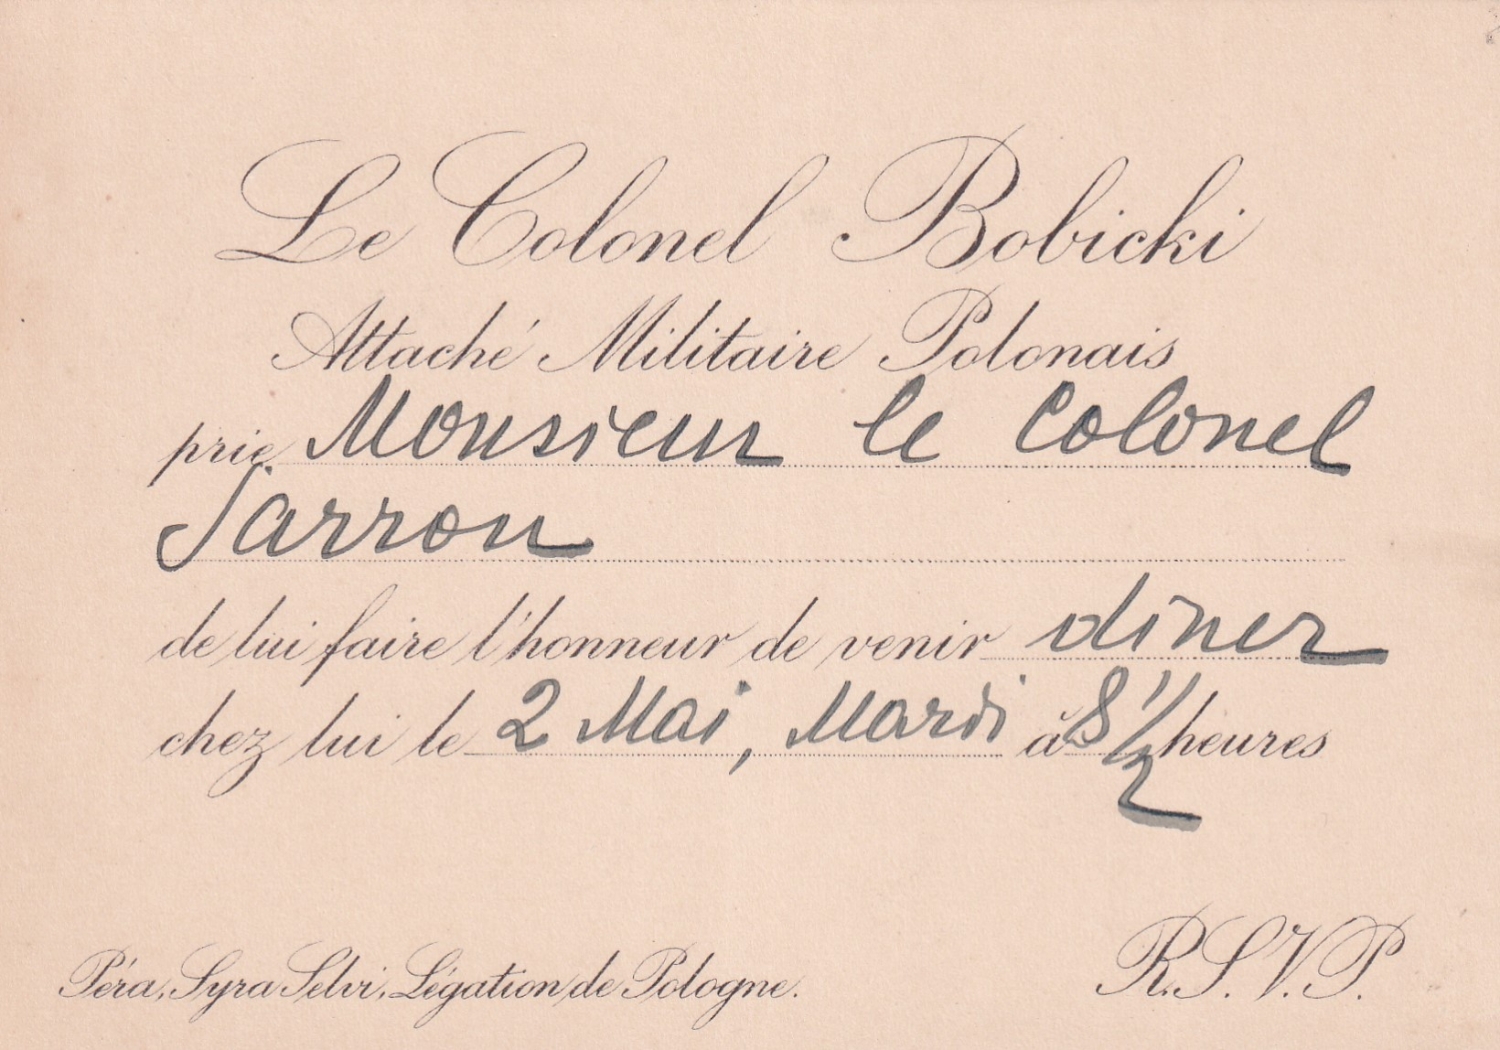 Le Colonel Bobicki
Attaché Militaire Polonais
prie Monsieur le Colonel
Sarrou
de lui faire l'honneur de venir dîner
chez lui le 2 Mai, Mardi à 8 1/2 heures
Péra, Syra Selvi, Légation de Pologne.
R.S.V.P.